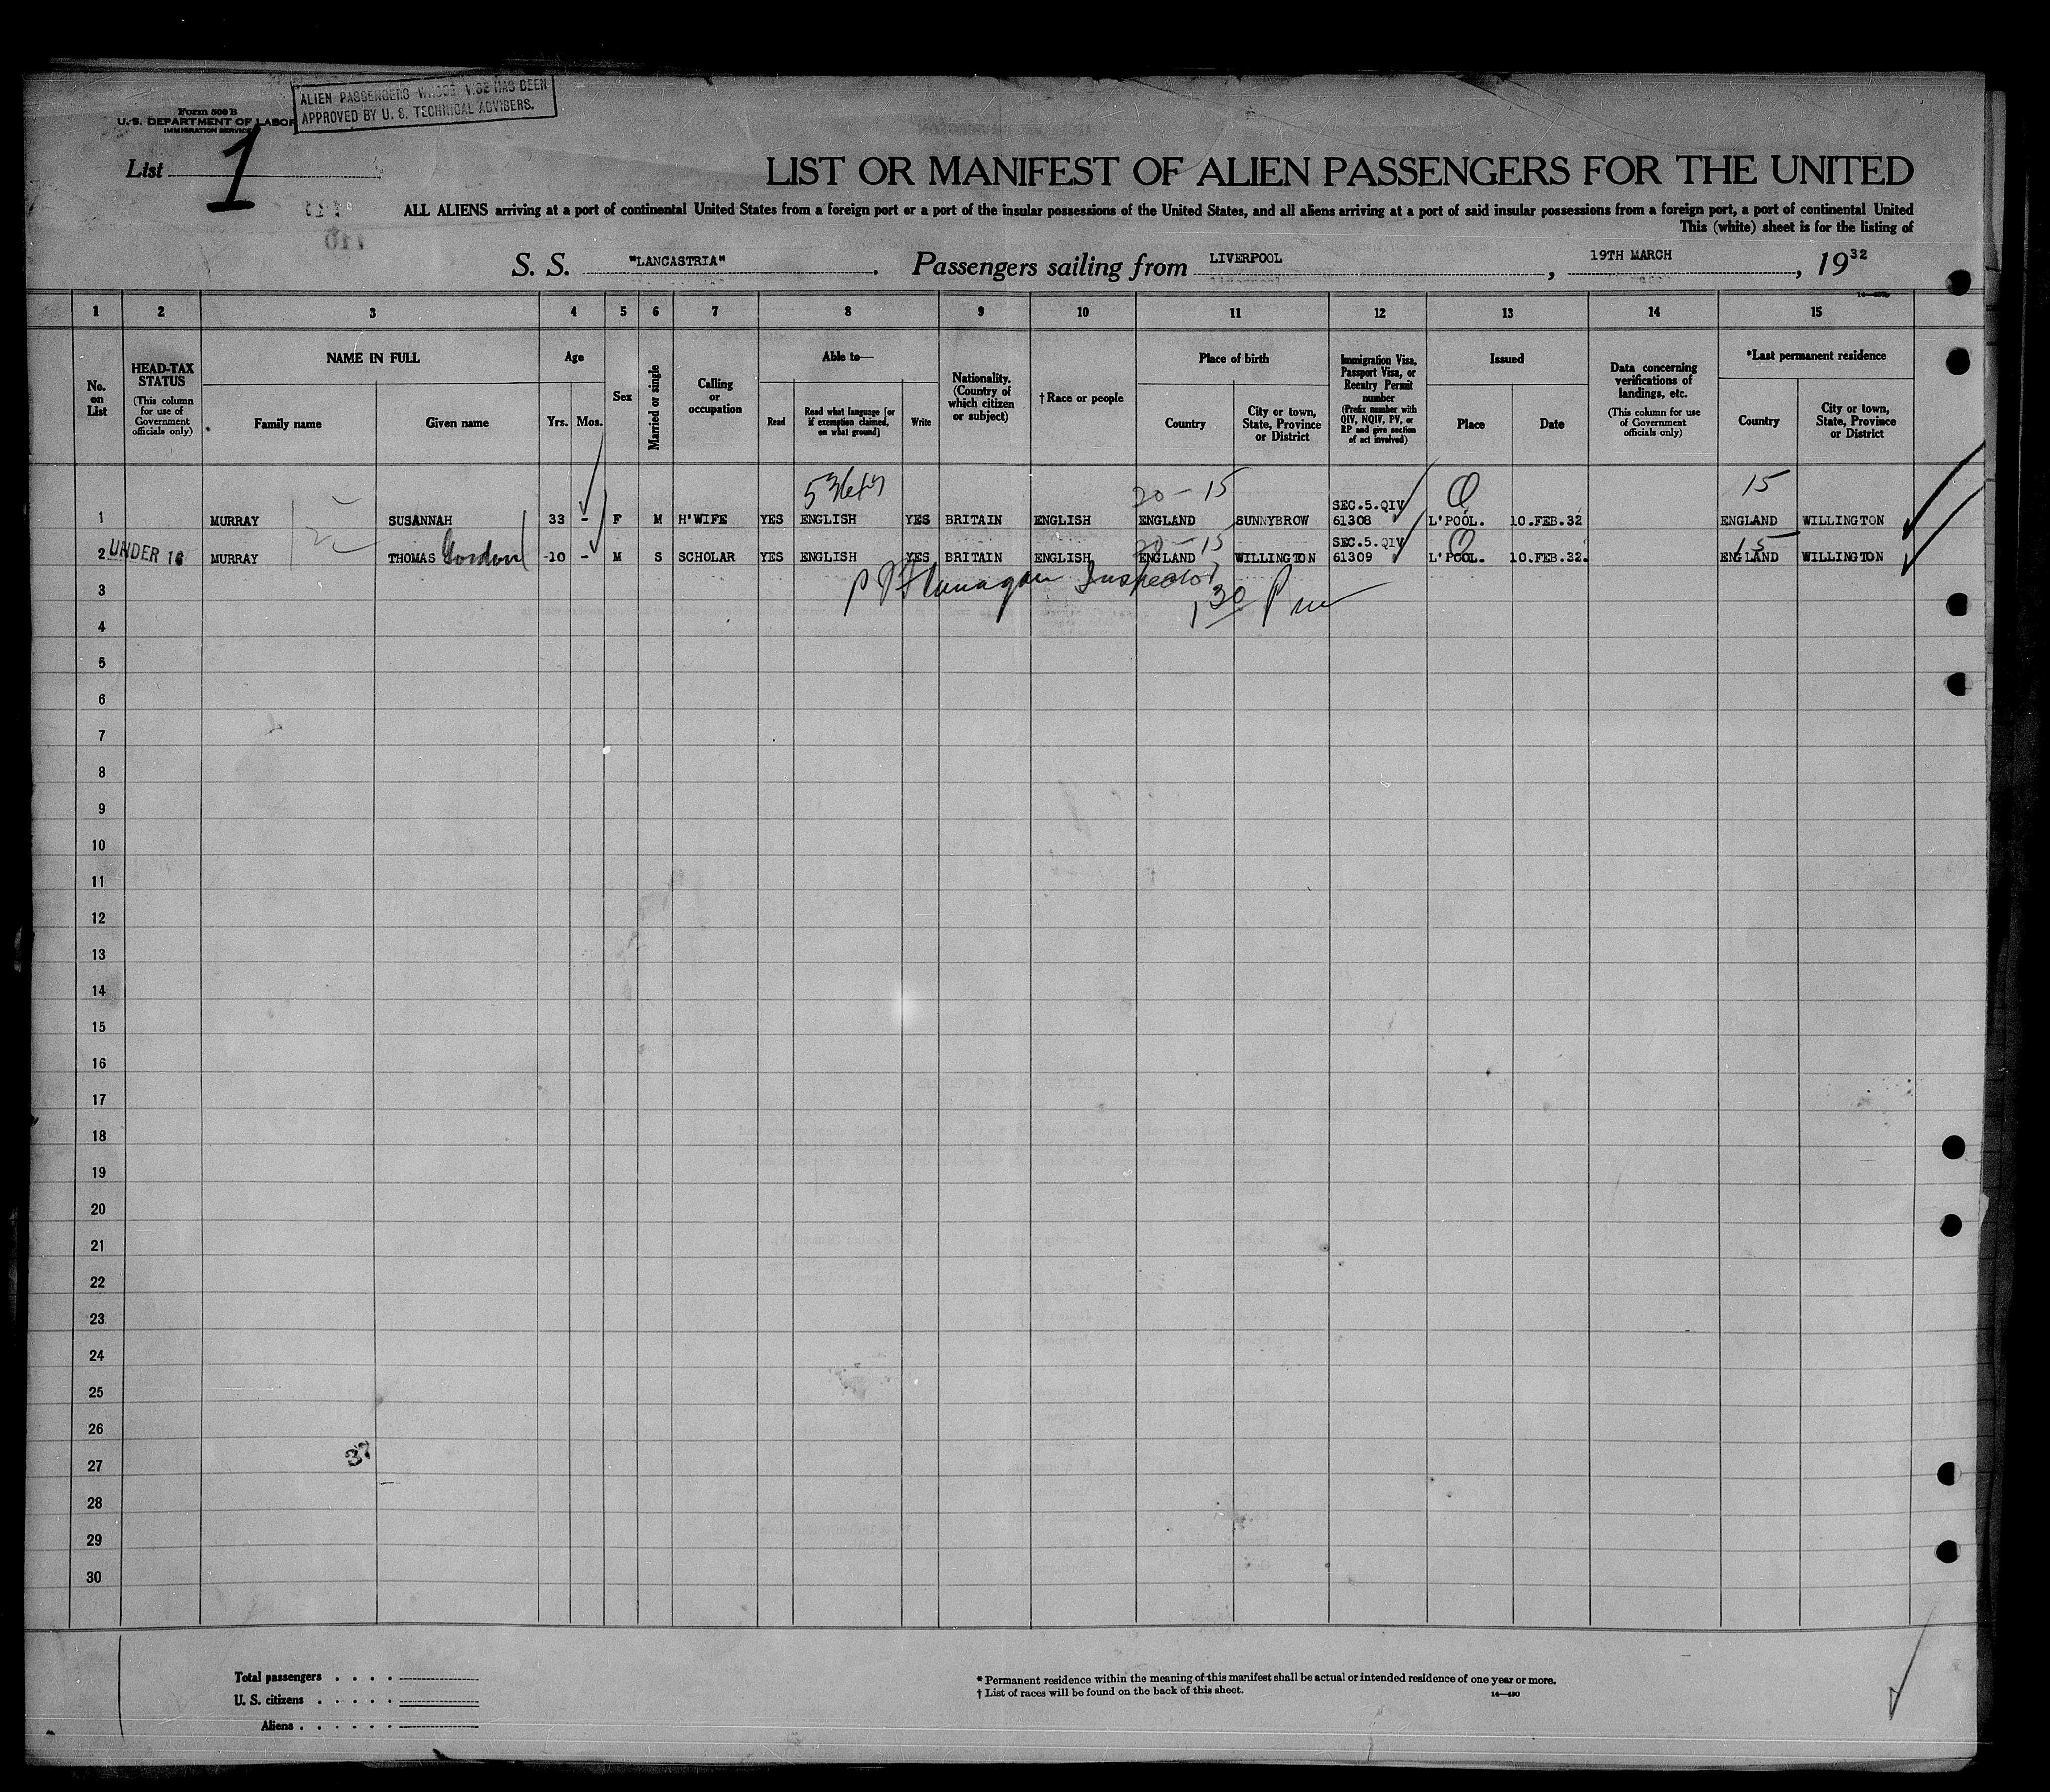 Form 500 B
U. S. DEPARTMENT OF LABOR
IMMIGRATION SERVICE
ALIEN PASSENGERS WHOSE VISE HAS BEEN
APPROVED BY U. S. TECHNICAL ADVISERS.
List 1
LIST OR MANIFEST OF ALIEN PASSENGERS FOR THE UNITED
ALL ALIENS arriving at a port of continental United States from a foreign port or a port of the insular possessions of the United States, and all aliens arriving at a port of said insular possessions from a foreign port, a port of continental United
This (white) sheet is for the listing of
S. S. "LANCASTRIA". Passengers sailing from LIVERPOOL, 19TH MARCH, 1932
1 2 3 4 5 6 7 8 9 10 11 12 13 14 15
No. on List
HEAD-TAX STATUS
(This column for use of Government officials only)
NAME IN FULL
Family name
Given name
Age
Yrs.
Mos.
Sex
Married or single
Calling or occupation
Able to—
Read
Read what language [or if exemption claimed, on what ground]
Write
Nationality. (Country of which citizen or subject)
† Race or people
Place of birth
Country
City or town, State, Province or District
Immigration Visa, Passport Visa, or Reentry Permit number
(Prefix number with QIV, NQIV, PV, or RP and give section of act involved)
Issued
Place
Date
Data concerning verifications of landings, etc.
(This column for use of Government officials only)
*Last permanent residence
Country
City or town, State, Province or District
20 - 15
15
SEC.5.QIV
1 MURRAY SUSANNAH 33 - F M H'WIFE YES ENGLISH YES BRITAIN ENGLISH ENGLAND SUNNYBROW 61308 L'POOL. 10.FEB.32 ENGLAND WILLINGTON
20 - 15
15
SEC.5.QIV
2 UNDER 16 MURRAY THOMAS Gordon 10 - M S SCHOLAR YES ENGLISH YES BRITAIN ENGLISH ENGLAND WILLINGTON 61309 L'POOL. 10.FEB.32. ENGLAND WILLINGTON
3 Flanagan Inspector
1 30 Pm
4
5
6
7
8
9
10
11
12
13
14
15
16
17
18
19
20
21
22
23
24
25
26
37
27
28
29
30
Total passengers
U. S. citizens
Aliens
* Permanent residence within the meaning of this manifest shall be actual or intended residence of one year or more.
† List of races will be found on the back of this sheet.
14—430